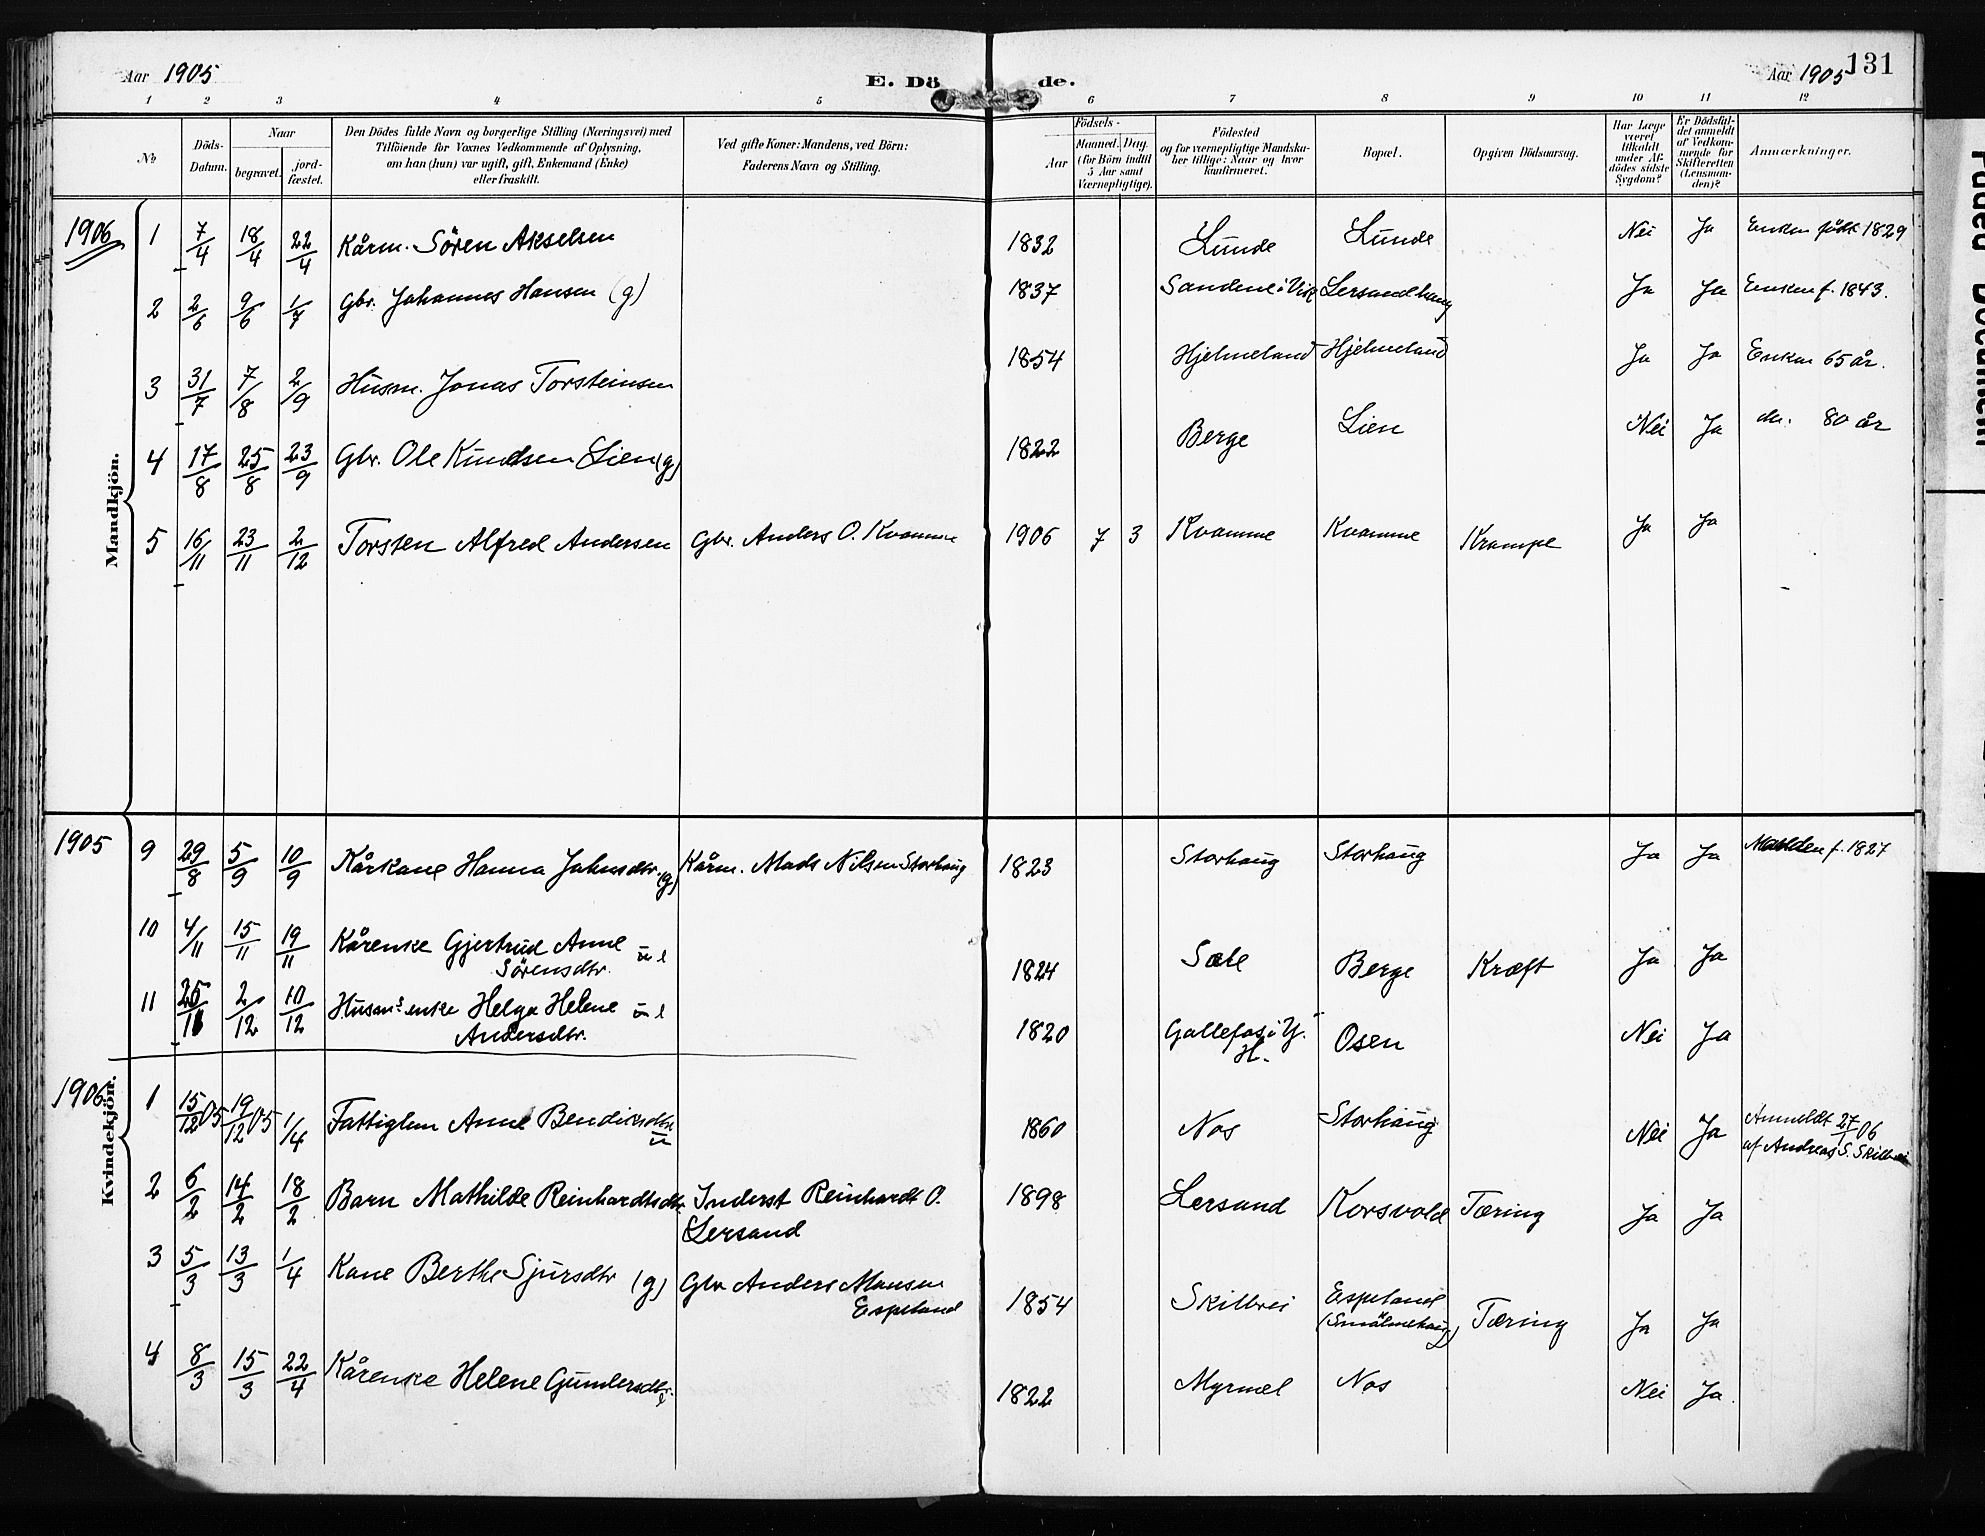 Aar 1905 E. Dö de. Aar 1905 131
1 2 3 4 5 6 7 8 9 10 11 12
No Döds-Datum. Naar begravet. jordfæstet. Den Dödes fulde Navn og borgerlige Stilling (Næringsvei) med Tilföiende for Voxnes Vedkommende af Oplysning, om han (hun) var ugift, gift, Enkemand (Enke) eller fraskilt. Ved gifte Koner: Mandens, ved Börn: Faderens Navn og Stilling. Födsels- Aar Maaned. Dag. (for Börn indtil 5 Aar samt Værnepligtige). Födested og for værnepligtige Mandskaber tillige: Naar og hvor konfirmeret. Bopæl. Opgiven Dödsaarsag. Har Læge været tilkaldt under Afdödes sidste Sygdom? Er Dödsfaldet anmeldt af Vedkommende for Skifteretten (Lensmanden)? Anmærkninger.
Mandkjön.
1906 1 7/4 18/4 22/4 Kårm. Sören Akselsen 1832 Lunde Lunde Nei Ja Enken født 1829
2 2/6 9/6 1/7 Gbr. Johannes Hansen (g) 1837 Sandene i Vik Lersandhaug Ja Ja Enken f. 1843.
3 31/7 7/8 2/9 Husm. Jonas Torsteinsen 1854 Hjelmeland Hjelmeland Ja Ja Enken 65 år.
4 17/8 25/8 23/9 Gbr. Ole Knudsen Lien (g) 1822 Berge Lien Nei Ja do. 80 år
5 16/11 23/11 2/12 Torsten Alfred Andersen Gbr. Anders O. Kvamme 1906 7 3 Kvamme Kvamme Krampe Ja Ja
Kvindekjön.
1905 9 29/8 5/9 10/9 Kårkone Hanna Johnsdtr. (g) Kårm. Mads Nilsen Storhaug 1823 Storhaug Storhaug Ja Ja Manden f. 1827
10 4/11 15/11 19/11 Kårenke Gjertrud Anne
Sörensdtr. 1824 Sæle Berge Kræft Ja Ja
11 25/11 2/12 10/12 Husms enke Helga Helene
Andersdtr. 1820 Gallefos i Y. H. Osen Nei Ja
1906 1 15/12 05 19/12 05 1/4 Fattiglem Anne Bendiksdtr. u 1860 Nos Storhaug Nei Ja Anmeldt 27/1 06
af Andreas S. Skilbrei
2 6/2 14/2 18/2 Barn Mathilde Reinhardtsdtr. Inderst Reinhardt O.
Lersand 1898 Lersand Korsvold Tæring Ja Ja
3 5/3 13/3 1/4 Kone Berthe Sjursdtr (g) Gbr Anders Monsen
Espeland 1854 Skilbrei Espeland
Tæring Ja Ja
4 8/3 15/3 22/4 Kårenke Helene Gundersdtr. 1822 Myrmel Nos Nei Ja.